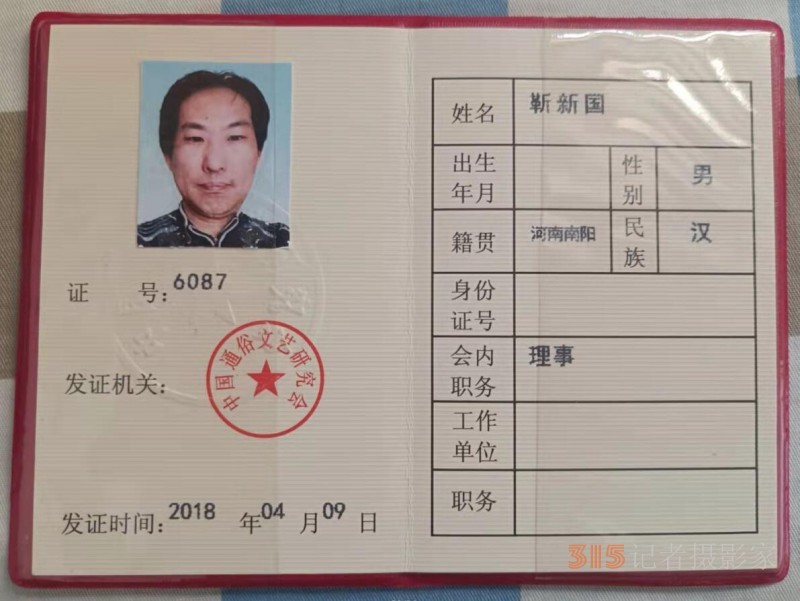 证 号:6087
中国通俗文艺研究会
发证机关:
发证时间:2018 年04 月09 日
姓名 靳新国
出生年月 性别 男
籍贯 河南南阳 民族 汉
身份证号
会内职务 理事
工作单位
职务
315记者摄影家